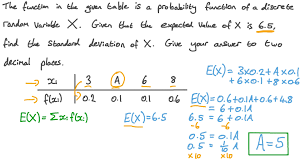 The function in the given table is a probability function of a discrete
random variable X. Given that the expected value of X is 6.5,
find the standard deviation of X. Give your answer to two
decimal places.
xᵢ 3 A 6 8
f(xᵢ) 0.2 0.1 0.1 0.6
E(X) = Σxᵢf(xᵢ) E(X) = 6.5
E(X) = 3×0.2 + A×0.1
+ 6×0.1 + 8×0.6
E(X) = 0.6 + 0.1A + 0.6 + 4.8
= 6 + 0.1A
6.5 = 6 + 0.1A
-6 -6
0.5 = 0.1A
0.5 = 1/10 A
×10 ×10
A = 5